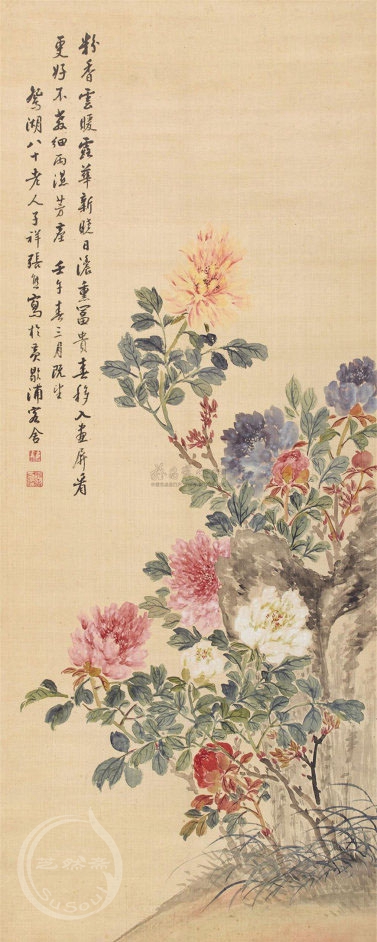 粉香雲暖露華新曉日濃熏富貴春移入畫屏看
更好不教細雨溼芳塵 壬午春三月既望
鴛湖八十老人子祥張熊寫於黃歇浦客舍